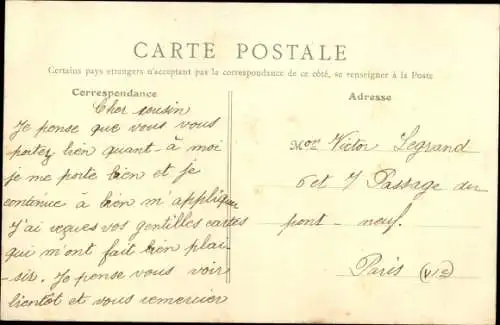 CARTE POSTALE
Certains pays etrangers n'acceptant pas la correspondance de ce côté, se renseigner à la Poste
Correspondance
Cher cousin
Je pense que vous vous
portez bien quant-à moi
je me porte bien et je
continue à bien m'applique
J'ai reçues vos gentilles cartes
qui m'ont fait bien plai-
-sir. Je pense vous voir
bientôt et vous remercier
Adresse
Victor Legrand
6 et 7 Passage du
pont-neuf.
Paris (VIe)